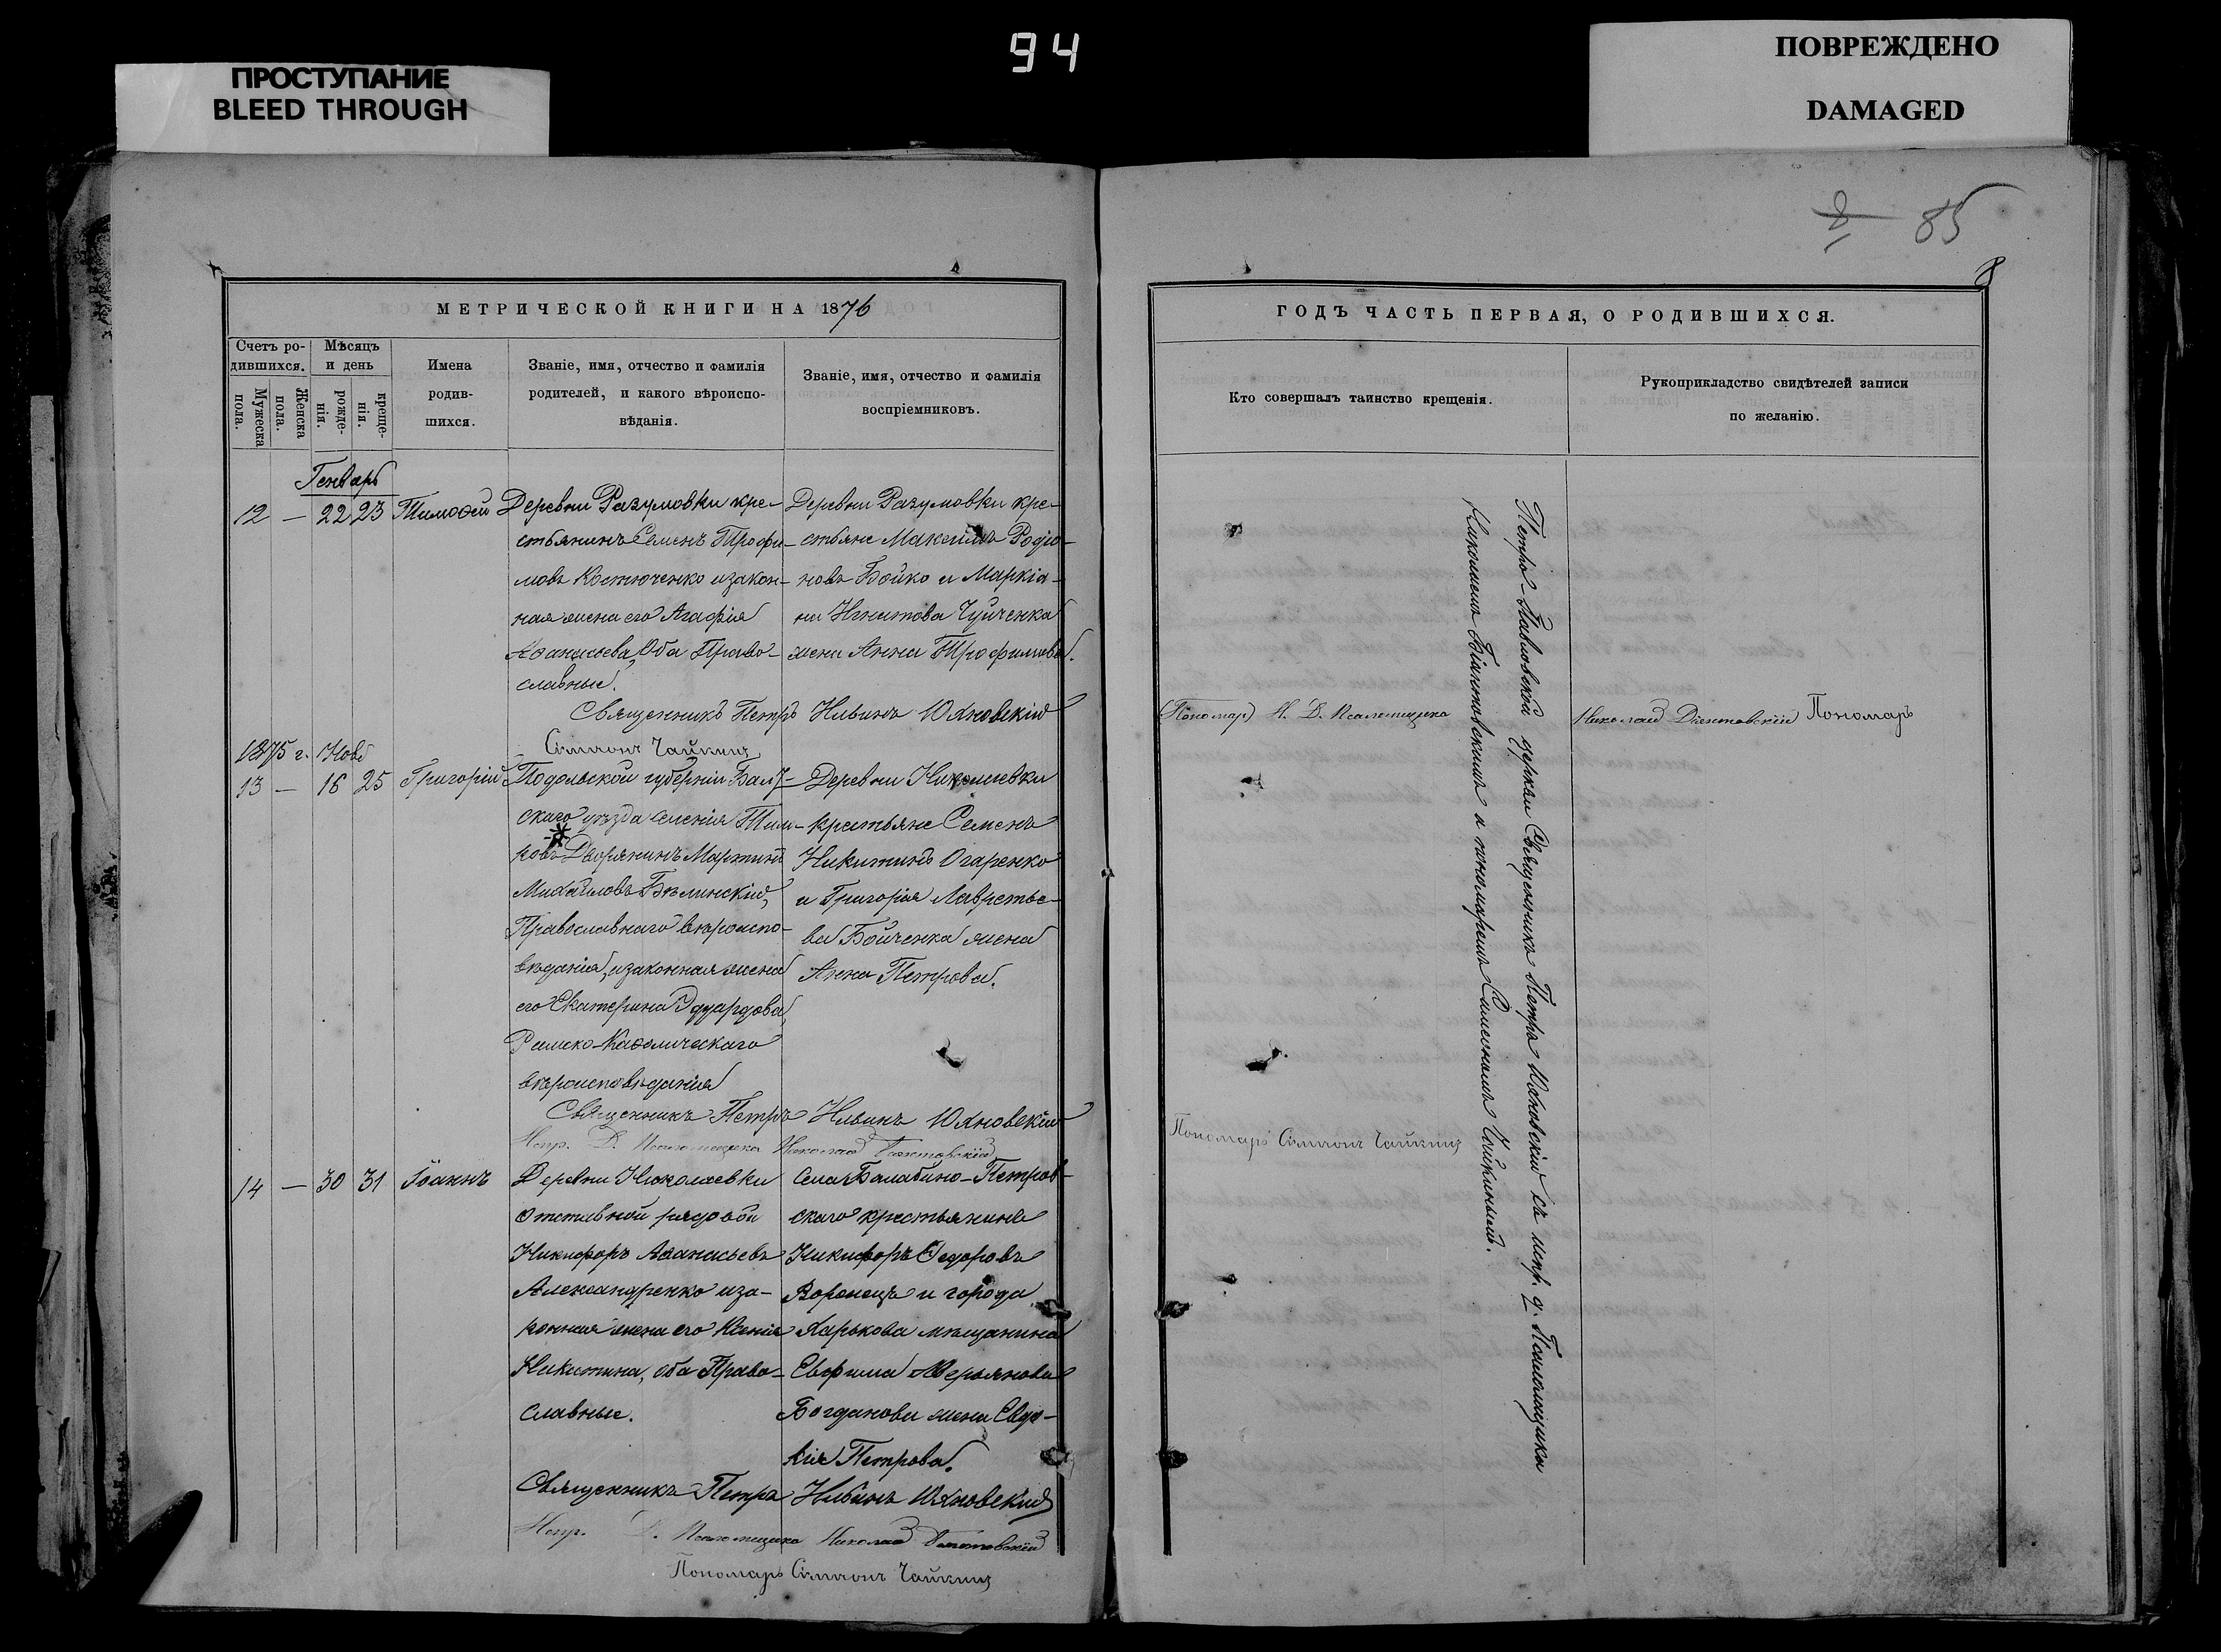 94
ПРОСТУПАНИЕ
BLEED THROUGH
ПОВРЕЖДЕНО
DAMAGED
85
8
МЕТРИЧЕСКОЙ КНИГИ НА 1876
Счетъ ро-
дившихся.
Мужеска
пола.
Женска
пола.
Мѣсяцъ
и день
рожде-
нія.
креще-
нія.
Имена
родив-
шихся.
Званіе, имя, отчество и фамилія
родителей, и какого вѣроиспо-
вѣданія.
Званіе, имя, отчество и фамилія
воспріемниковъ.
Генварь
12 — 22 23 Тимоѳей
Деревни Разумовки кре-
стьянинъ Семенъ Трофи-
мовъ Костюченко и закон-
ная жена его Агафія
Аѳанасьева, Оба Право-
славные.
Деревни Разумовки кре-
стьяне Максимъ Родіо-
новъ Бойко и Маркіа-
на Никитова Чуйченка
жена Анна Трофимова.
Священникъ Петръ Ильинъ Юхновскій
Сѵмеонъ Чайкинъ
1875 г. Нояб
13 — 16 25 Григорій
Подольской губерніи Балт-
скаго уѣзда селенія
Дворянинъ Мартинъ
Михайловъ Бѣлинскій,
Православнаго вѣроиспо-
вѣданія, и законная жена
его Екатерина Эдуардова,
Римско-Каѳолическаго
вѣроисповѣданія
Деревни Николаевки
крестьяне Семенъ
Никитинъ Огаренко
и Григорія Лавретье-
ва Бойченка жена
Анна Петрова.
Священникъ Петръ Ильинъ Юхновскій
Испр. Д. Псаломщика Николай
14 — 30 31 Іоаннъ
Деревни Николаевки
отставной рядовой
Никифоръ Аѳанасьевъ
Александренко и за-
конная жена его Ксенія
Никитина, оба Право-
славные.
Села Балабино-Петров-
скаго крестьянинъ
Никифоръ Ѳедоровъ
Воронецъ и города
Харькова мѣщанина
Евфима
Богданова жена Евдо-
кія Петрова.
Священникъ Петръ Ильинъ Юхновскій
Испр. Д. Псаломщика Николай
Пономарь Сѵмеонъ Чайкинъ
ГОДЪ ЧАСТЬ ПЕРВАЯ, О РОДИВШИХСЯ.
Кто совершалъ таинство крещенія.
Рукоприкладство свидѣтелей записи
по желанію.
Петро-Павловской церкви Священникъ Петръ Юхновскій съ испр. д. Псаломщика
Николаемъ и пономаремъ Симеономъ Чайкинымъ.
Пономарь И. Д. Псаломщика
Николай Пономарь
Пономарь Сѵмеонъ Чайкинъ